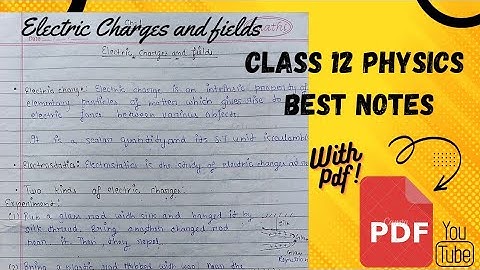 Electric Charges and fields
Electric Charges and fields
• Electric charge: Electric charge is an intrinsic property of
elementary particles of matter which gives rise to
electric force between various objects.
It is a scalar quantity and its S.I unit is coulomb
• Electrostatics: Electrostatics is the study of electric charges at
• Two kinds of electric charges:
Experiment:
(1) Rub a glass rod with silk and hanged it by
silk thread. Bring another charged rod
near it. Then they repel.
Silk
(2) Bring a plastic rod rubbed with wool near the
CLASS 12 PHYSICS
BEST NOTES
With
pdf!
PDF
YouTube